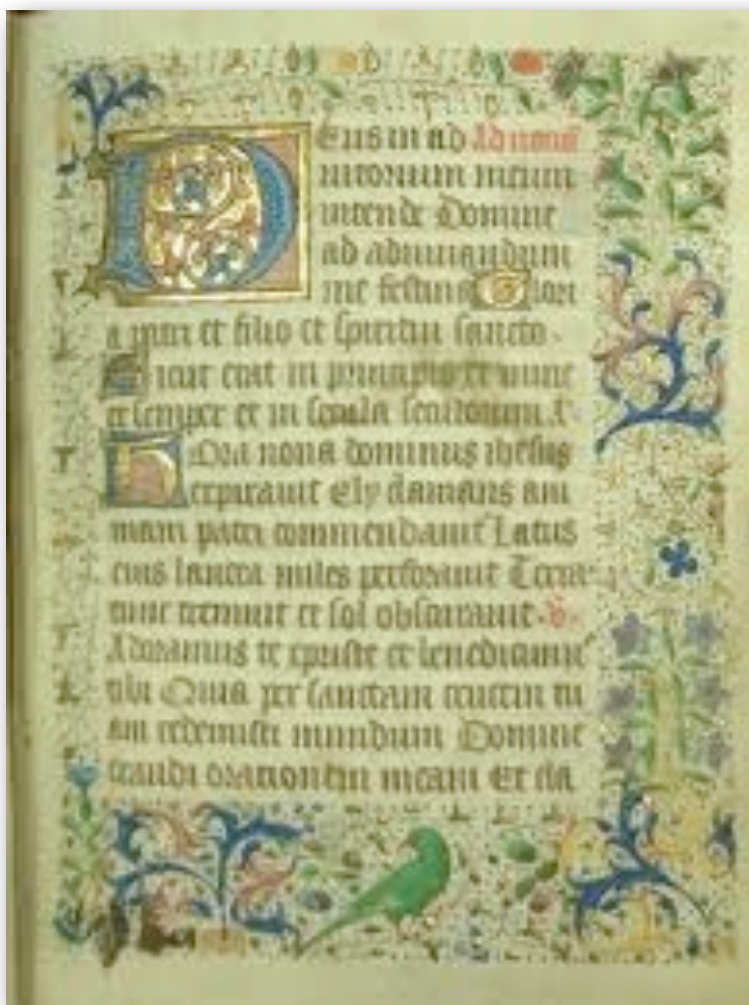 Deus in ad Ad nonā
iutorium meum
intende Domine
ad adiuuandum
me festina Glori
a patri et filio et spiritui sancto.
Sicut erat in principio et nunc
et semper et in secula seculorum. A
Hora nona dominus ihesus
expirauit Ely clamans ani
mam patri commendauit Latus
eius lancea miles perforauit Terra
tunc tremuit et sol obscurauit. v̄.
Adoramus te xpriste et benedicimus
tibi Quia per sanctam crucem tu
am redemisti mundum Domine
exaudi orationem meam Et cla